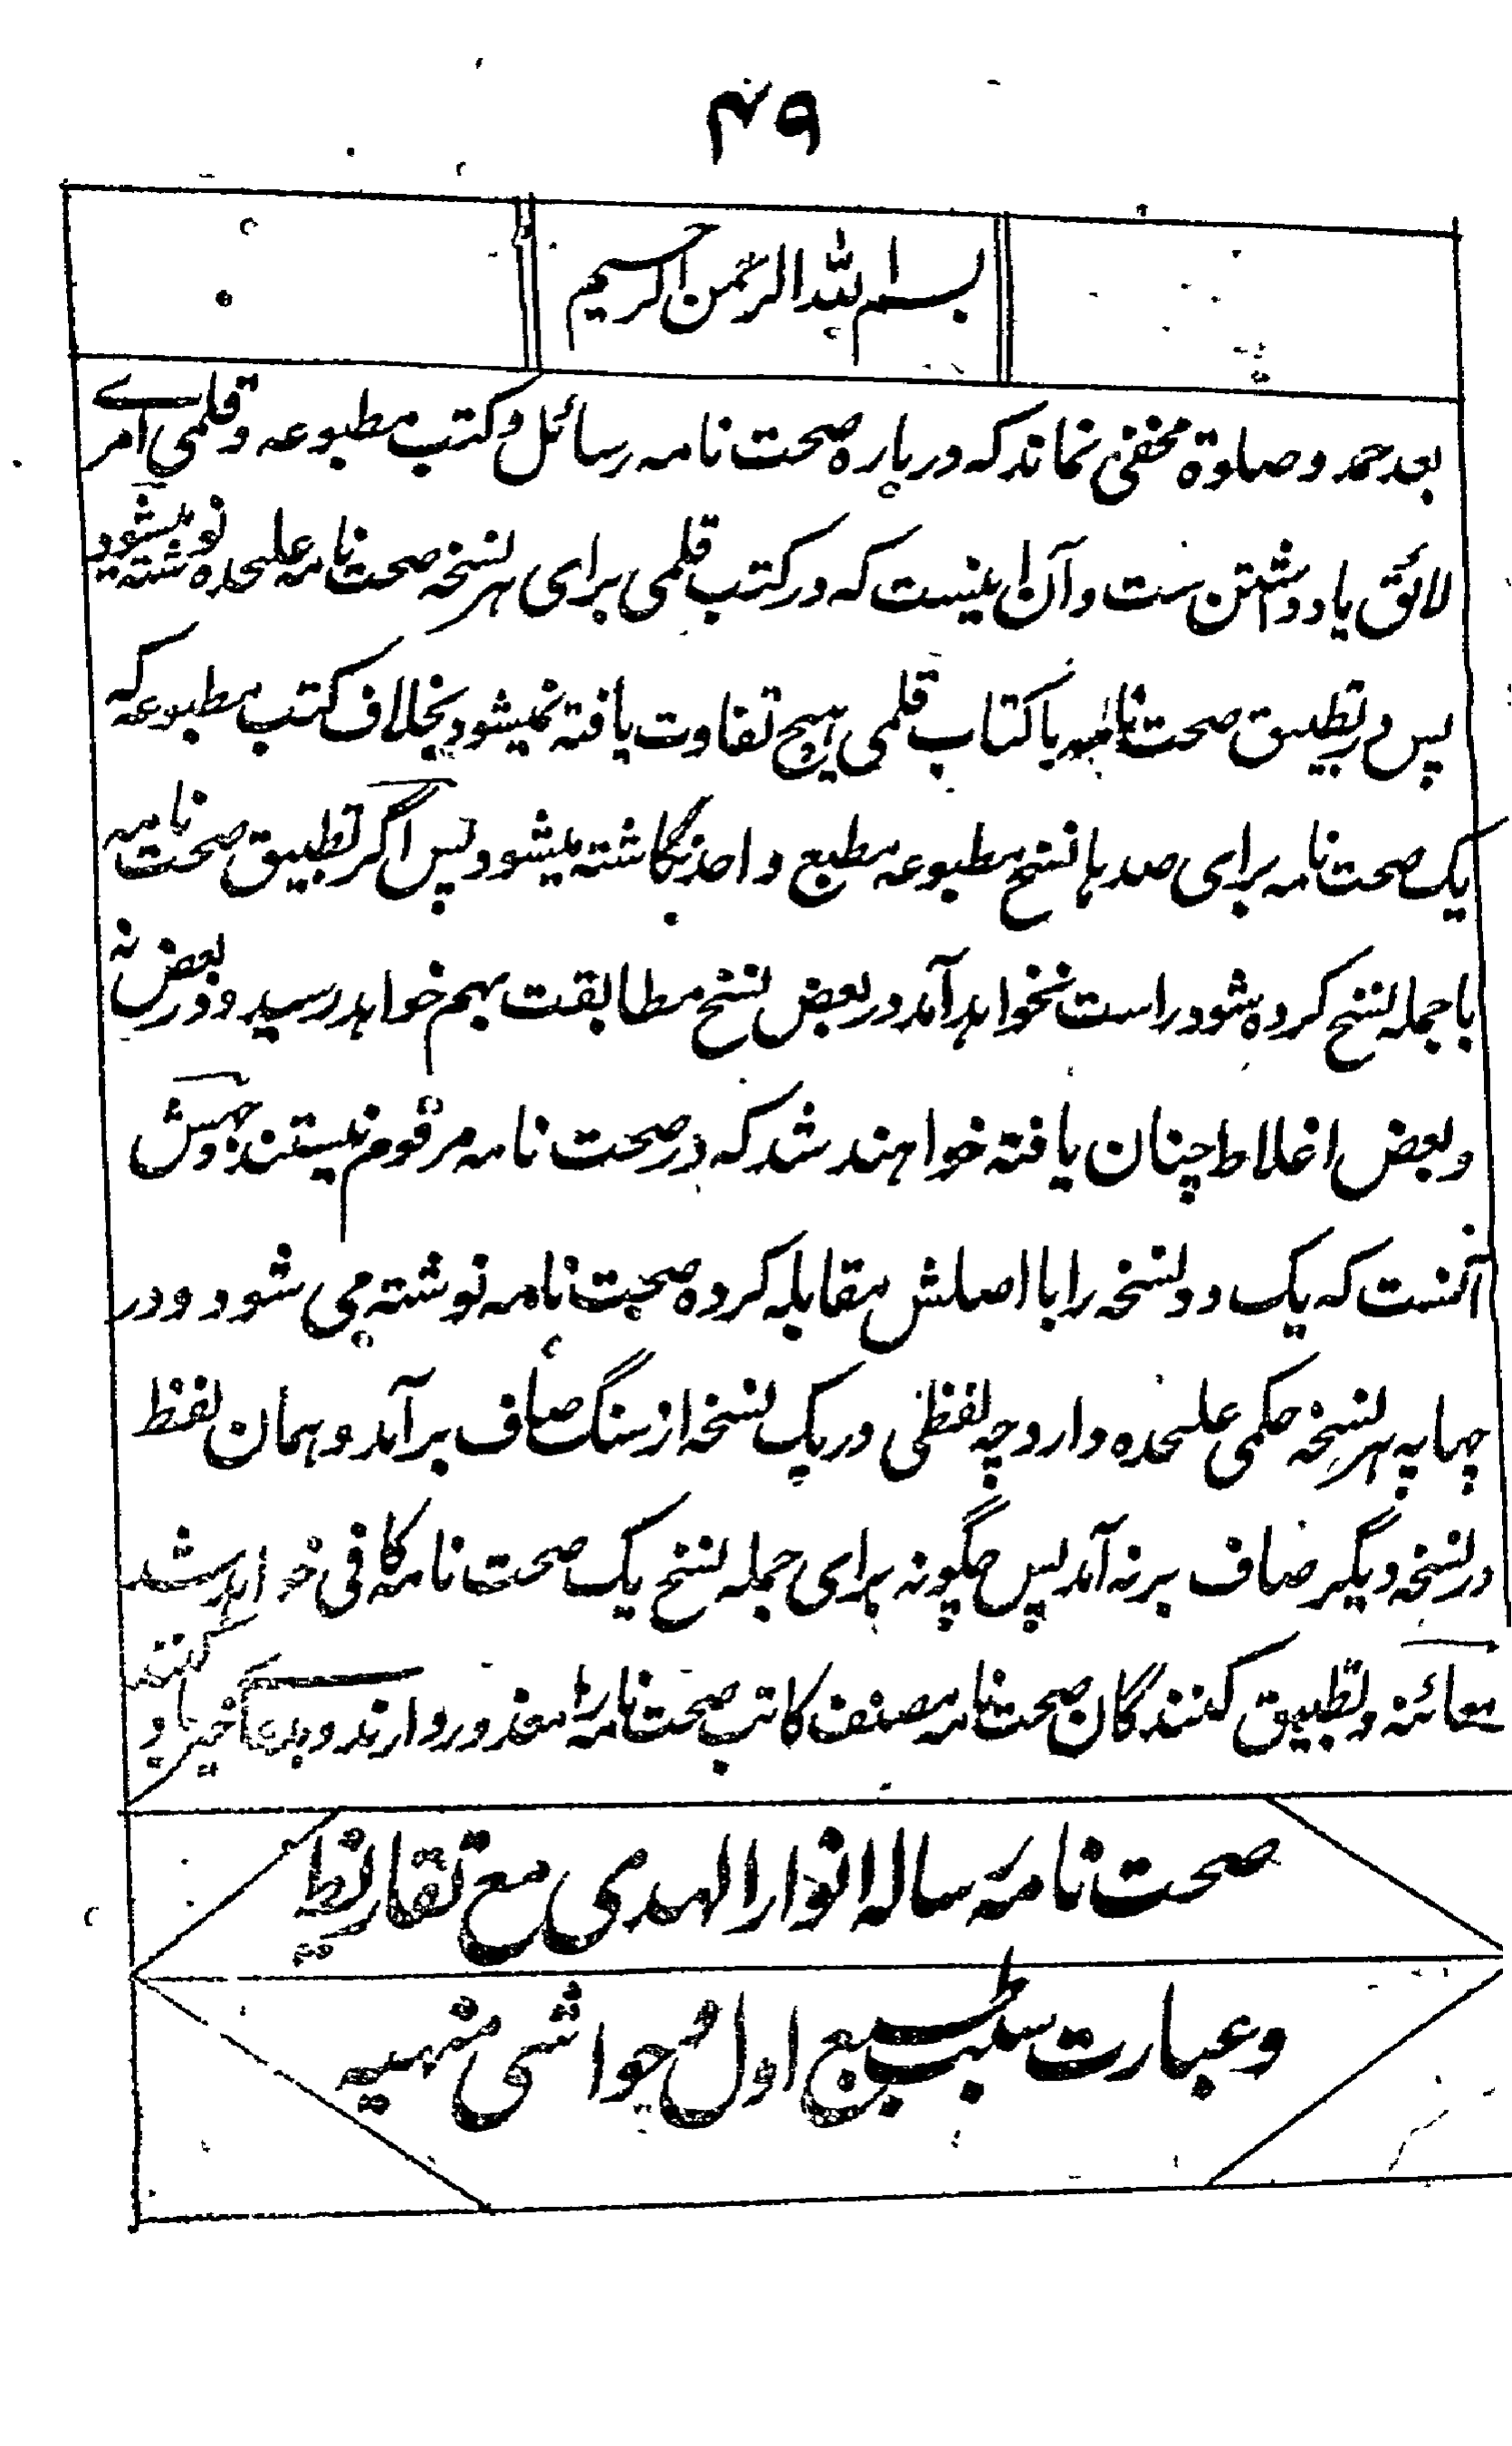 ۴۹
بسم الله الرحمن الرحیم
بعد حمد و صلوة مخفی نماند که درباره صحت نامه رسائل و کتب مطبوعه و قلمی امرے
لائق یاد داشتن ست و آن اینست که در کتب قلمی برای هر نسخه صحت نامه علحده نوشته میشود
پس در تطبیق صحت نامه با کتاب قلمی هیچ تفاوت یافته نمیشود بخلاف کتب مطبوعه که
یک صحت نامه برای صدها نسخ مطبوعه مطبع واحد نگاشته میشود پس اگر تطبیق صحت نامه
با جمله نسخ کرده شود راست نخواهد آمد در بعض نسخ مطابقت بهم خواهد رسید و در بعض نه
و بعض اغلاط چنان یافته خواهند شد که در صحت نامه مرقوم نیستند وجهش
آنست که یک دو نسخه را با اصلش مقابله کرده صحت نامه نوشته می شود و در
چهاپه هر نسخه حکمی علحده دارد چه لفظی در یک نسخه از سنگ صاف برآمد و همان لفظ
در نسخه دیگر صاف بر نه آمد پس چگونه برای جمله نسخ یک صحت نامه کافی خواهد شد
معائنه و تطبیق کنندگان صحت نامه مصنف کاتب صحت نامه را معذور دارند و بدعا خیر یاد کنند
صحت نامه رساله انوار الهدی مع تقاریظ
و عبارت طبع اول حواشی منهیه